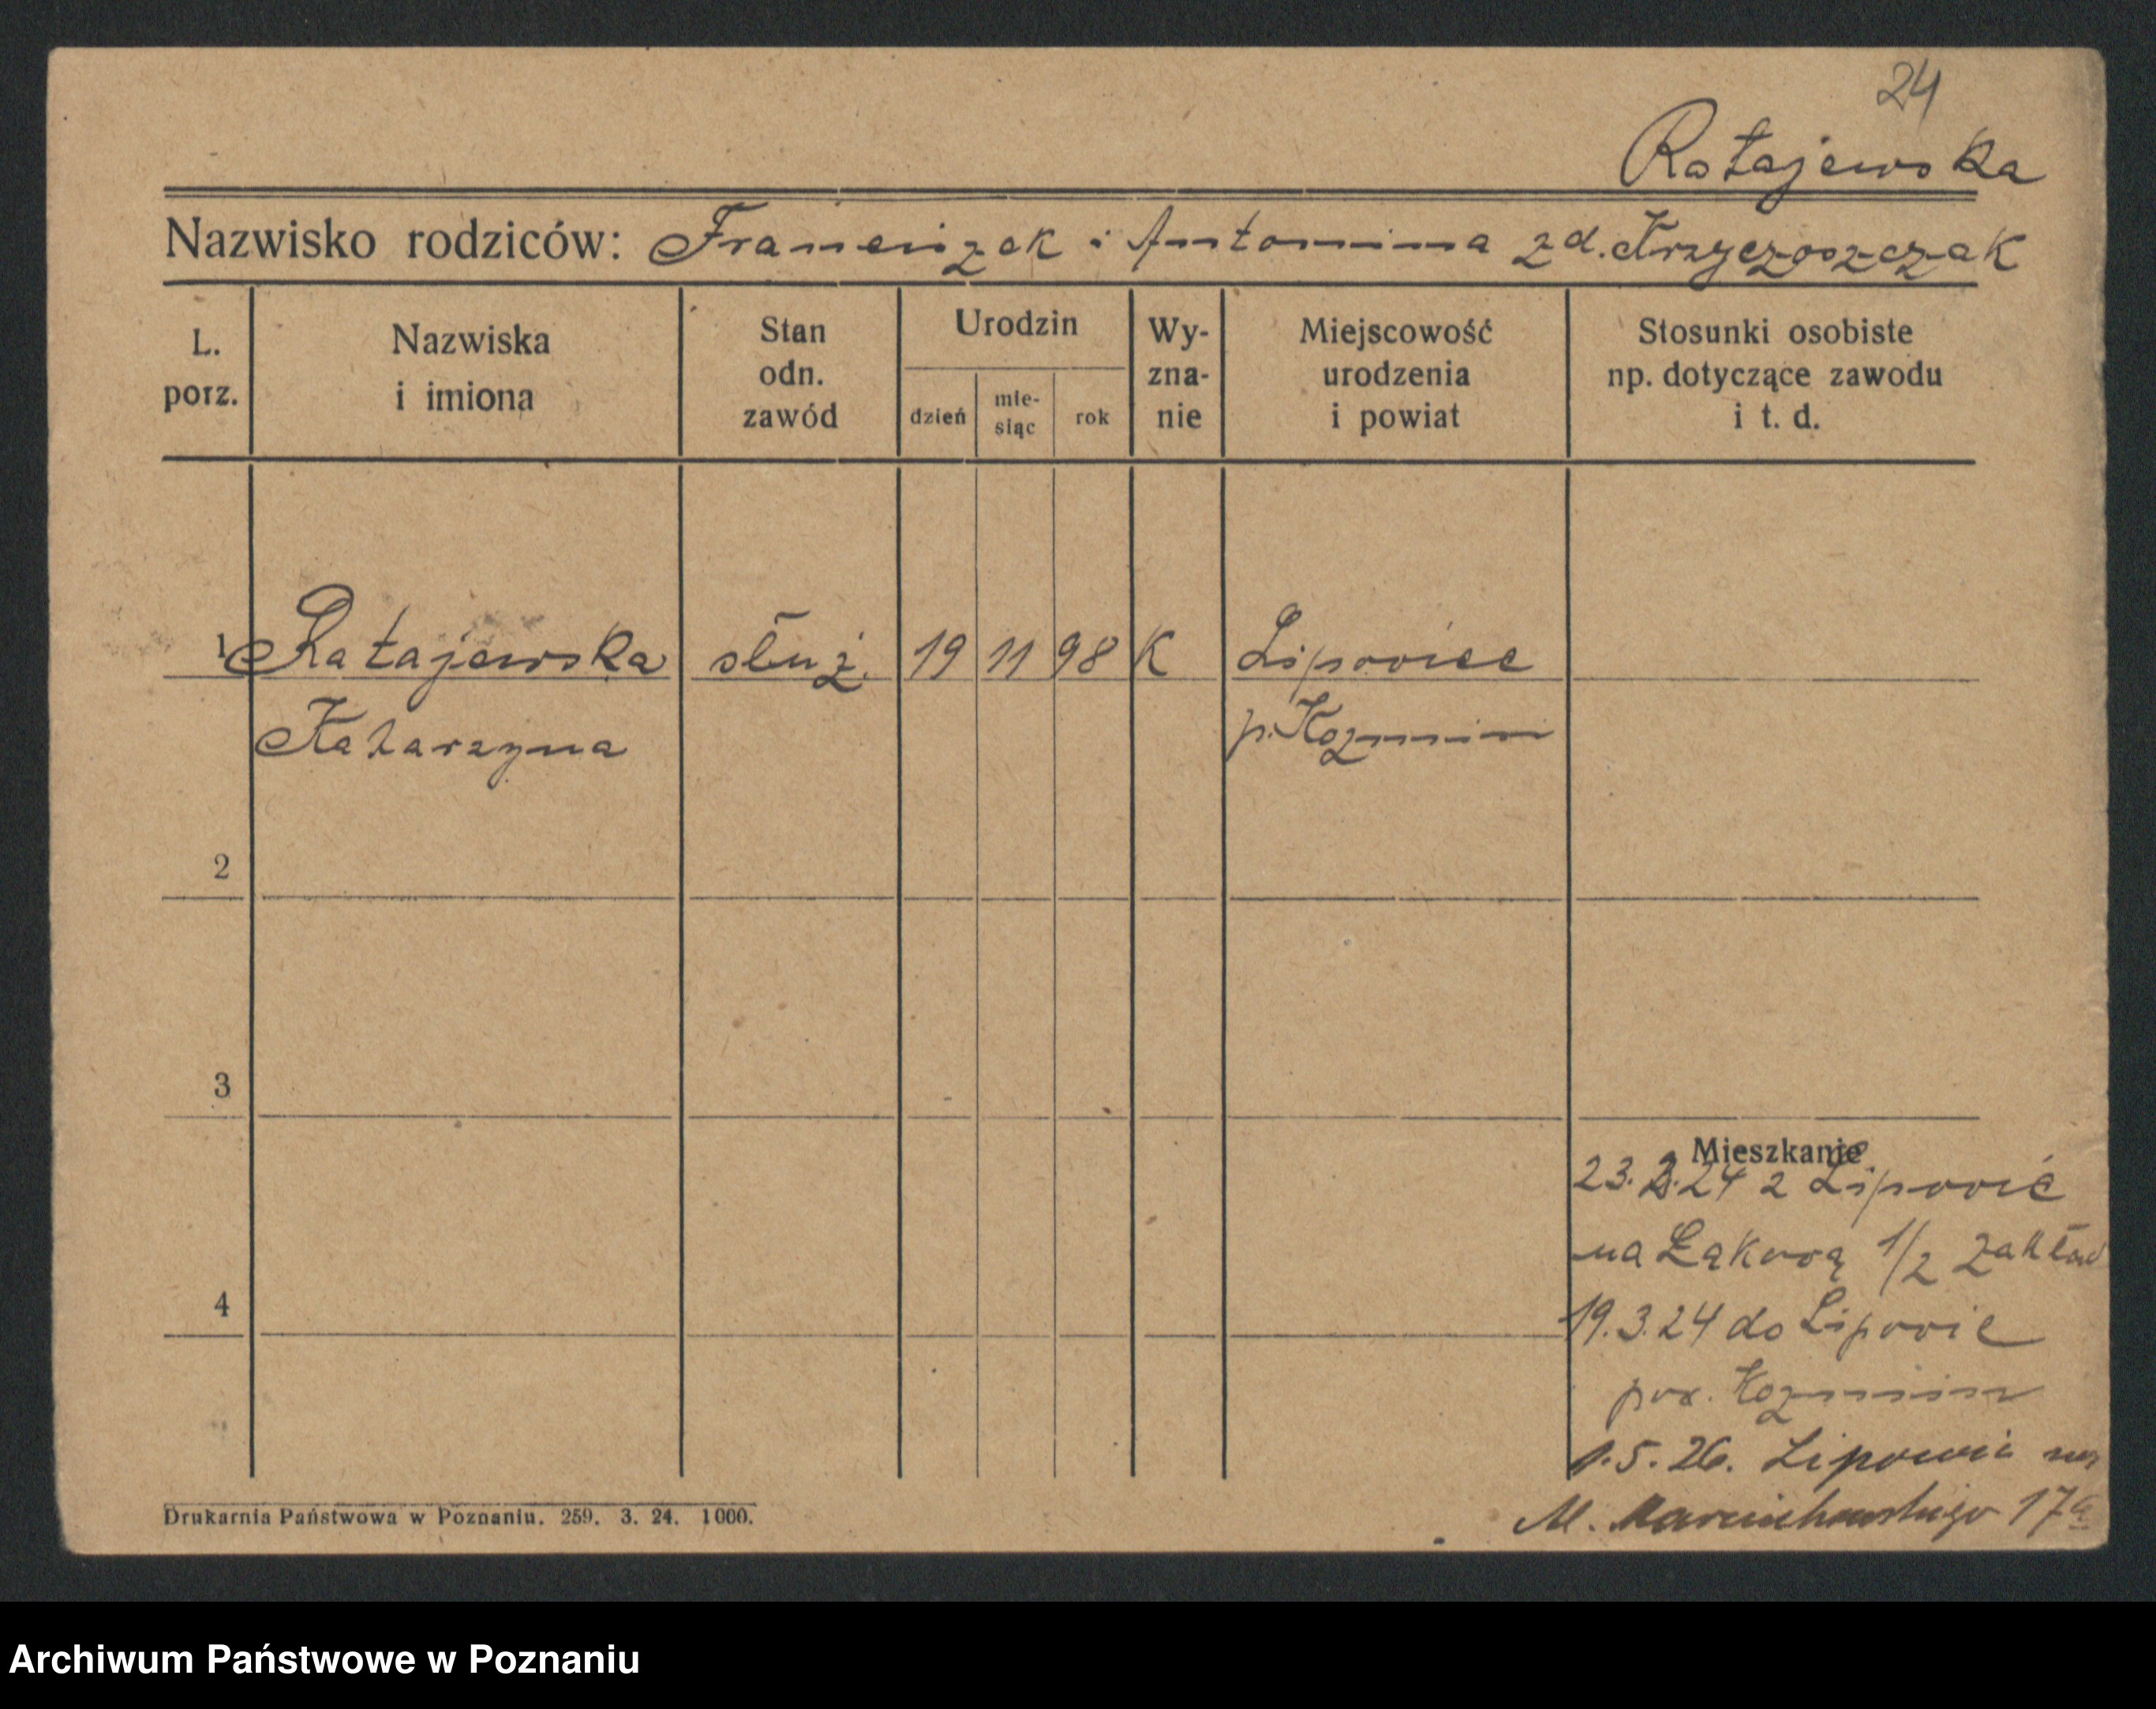 24
Ratajewska
Nazwisko rodziców: Franciszek i Antonina zd. Krzyczoszczak
L. porz.
Nazwiska i imiona
Stan odn. zawód
Urodzin
dzień
mie-siąc
rok
Wy-zna-nie
Miejscowość urodzenia i powiat
Stosunki osobiste np. dotyczące zawodu i t. d.
1 Ratajewska służ. 19 11 98 K Lipowiec
Katarzyna p. Kozmin
2
3
4
Mieszkanie
23. 2. 24 z Lipowic
na Łąkową 1/2 Zakład
19. 3. 24 do Lipowic
pow. Kozmin
1. 5. 26. Lipowic na
M. 17a
Drukarnia Państwowa w Poznaniu. 259. 3. 24. 1000.
Archiwum Państwowe w Poznaniu